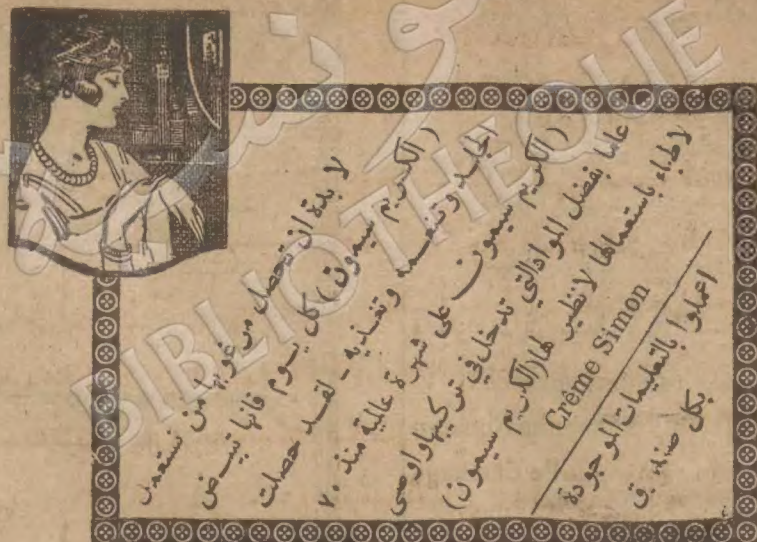 لا بدة ان تحصل مرغوبها من تستعمل
(الكريم سيمون) كل يوم فانها تبيض
الجلد وتنعمه وتغذيه - لقد حصلت
(الكريم سيمون على شهرة عالية منذ ٧٠
عاما بفضل المواد التي تدخل في تركيبها واوصى
لاطباء باستعمالها لا نظير لها (الكريم سيمون)
Crème Simon
اعملوا بالتعليمات الموجودة
بكل صندوق
BIBLIOTHEQUE